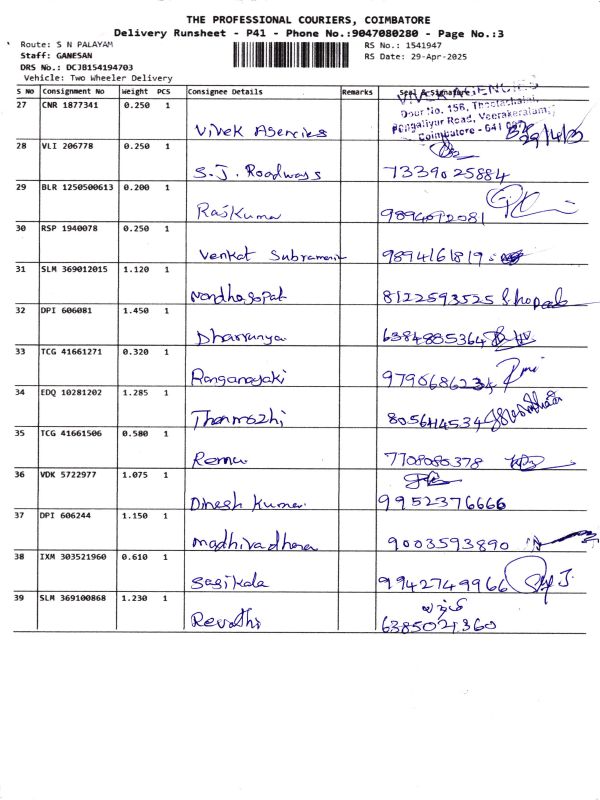 THE PROFESSIONAL COURIERS, COIMBATORE
Delivery Runsheet - P41 - Phone No.:9047080280 - Page No.:3
Route: S N PALAYAM RS No.: 1541947
Staff: GANESAN RS Date: 29-Apr-2025
DRS No.: DCJB154194703
Vehicle: Two Wheeler Delivery
S No Consignment No Weight PCS Consignee Details Remarks Seal & Signature
27 CNR 1877341 0.250 1
VIVEK AGENCIES
Door No. 15B, Thottachalai,
Pongaliyur Road, Veerakeralam,
Coimbatore - 641 007
Vivek Agencies
28 VLI 206778 0.250 1
S.J. Roadways 7339025884
29 BLR 1250500613 0.200 1
Rajkumar 9894072081
30 RSP 1940078 0.250 1
Venkat Subramani 9894161819
31 SLM 369012015 1.120 1
Nandhagopal 8122593525
32 DPI 606081 1.450 1
Dharrunya 6384885364
33 TCG 41661271 0.320 1
Ranganayaki 9790686234
34 EDQ 10281202 1.285 1
Thenmozhi 8056114534
35 TCG 41661506 0.580 1
Remu 7708080378
36 VDK 5722977 1.075 1
Dinesh Kumar 9952376666
37 DPI 606244 1.150 1
Madhivadhana 9003593890
38 IXM 303521960 0.610 1
Sasikala 9942749966
39 SLM 369100868 1.230 1
Revathi 6385021360